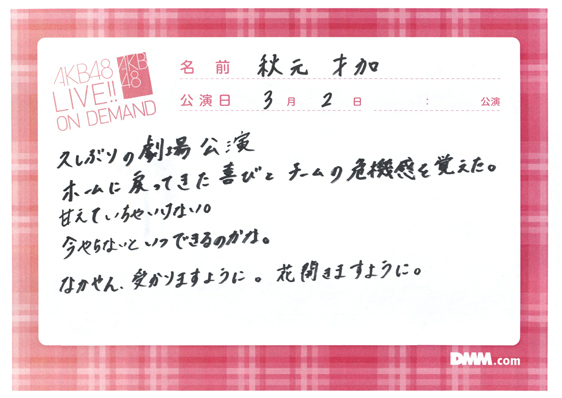 AKB48
LIVE!!
ON DEMAND
AKB
48
名前 秋元 才加
公演日 3月2日 : 公演
久しぶりの劇場公演
ホームに戻ってきた喜びとチームの危機感を覚えた。
甘えていちゃいけない。
今やらないといつできるのかな。
なかやん、受かりますように。花開きますように。
DMM.com